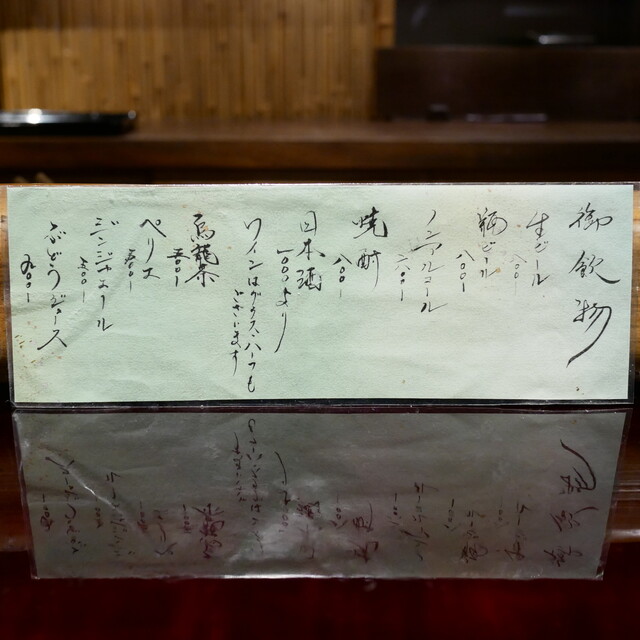 御飲物
生ビール
八〇〇-
瓶ビール
八〇〇-
ノンアルコール
六〇〇-
焼酎
八〇〇-
日本酒
一〇〇〇より
ワインはグラス、ハーフも
ございます
烏龍茶
五〇〇-
ペリエ
五〇〇-
ジンジャエール
五〇〇-
ぶどうジュース
九〇〇-